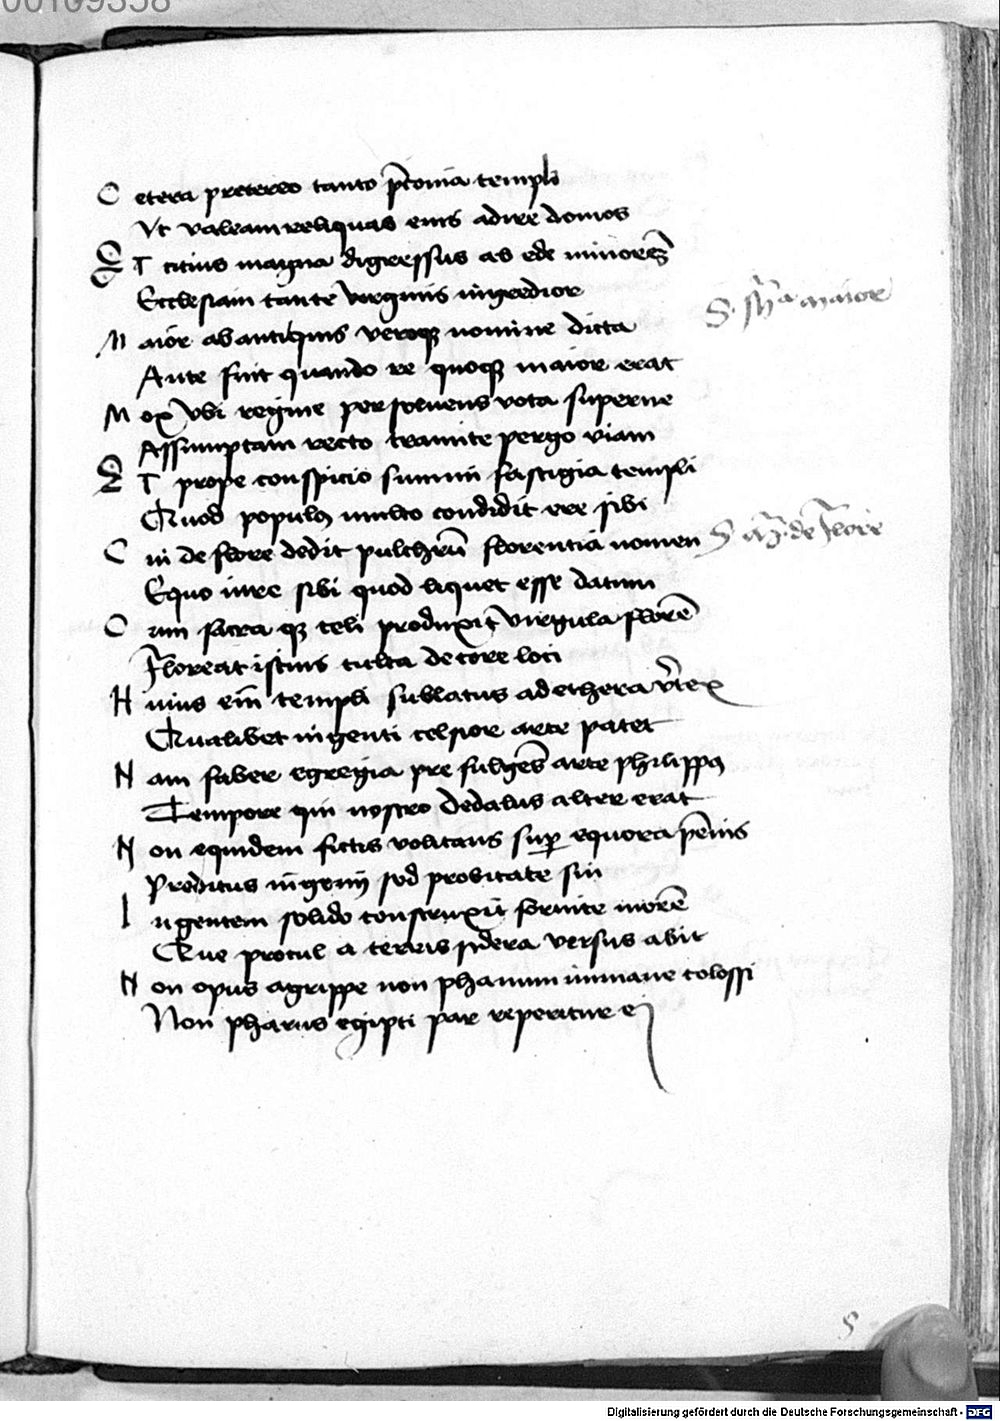 00109358
C etera pretereo tanto p̄conia templi
Vt valeam reliquas eius adire domos
E T citius magna digressus ab ede minorē
Ecclesiam tante virginis ingredior
M aior ab antiquis veroqꝫ nomine dicta
Ante fuit quando re quoqꝫ maior erat
M ox vbi regine persoluens vota superne
Assumptam recto tramite pergo viam
E T prope conspicio summi fastigia templi
Quod populus multo condidit ere sibi
C ui de flore dedit pulchrū florentia nomen
Equo iure sibi quod liquet esse datum
C um sacra qꝫ celi produxit virgula florē
Floreat istius culta decore loci
H uius em̄ templi sublatus ad ethera v̄tex
Qualibet ingenti celsior arce patet
N am faber egregia pre fulgēs arte philippus
Tempore qui nostro Dedalus alter erat
N on equidem fictis volitans suꝑ equora pēnis
Preditus ingenij sed probitate sui
I ngentem solido construxit fornite morē
Que procul a terris sidera versus abit
N on opus agrippe non phanum immane colossi
Non pharus egipti par reperitur ei
S. maior
S de Flore
Digitalisierung gefördert durch die Deutsche Forschungsgemeinschaft - DFG